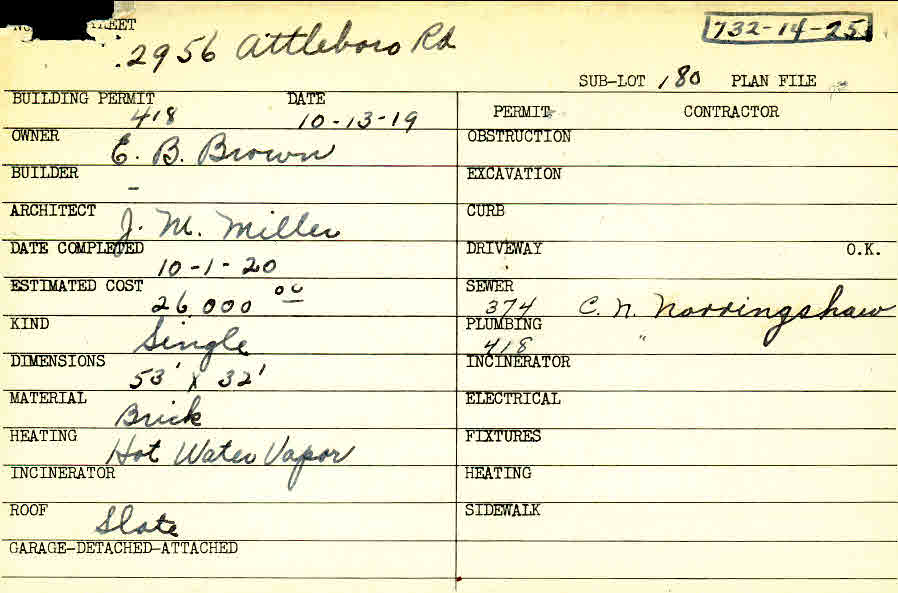 STREET
2956 Attleboro Rd
732-14-25
SUB-LOT 180 PLAN FILE
BUILDING PERMIT DATE
418 10-13-19
PERMIT CONTRACTOR
OWNER
E. B. Brown
OBSTRUCTION
BUILDER
-
EXCAVATION
ARCHITECT
J. M. Miller
CURB
DATE COMPLETED
10-1-20
DRIVEWAY O.K.
ESTIMATED COST
26,000 00
SEWER
374 C. N. Norringshaw
KIND
Single
PLUMBING
418 "
DIMENSIONS
53' x 32'
INCINERATOR
MATERIAL
Brick
ELECTRICAL
HEATING
Hot Water Vapor
FIXTURES
INCINERATOR
HEATING
ROOF
Slate
SIDEWALK
GARAGE-DETACHED-ATTACHED